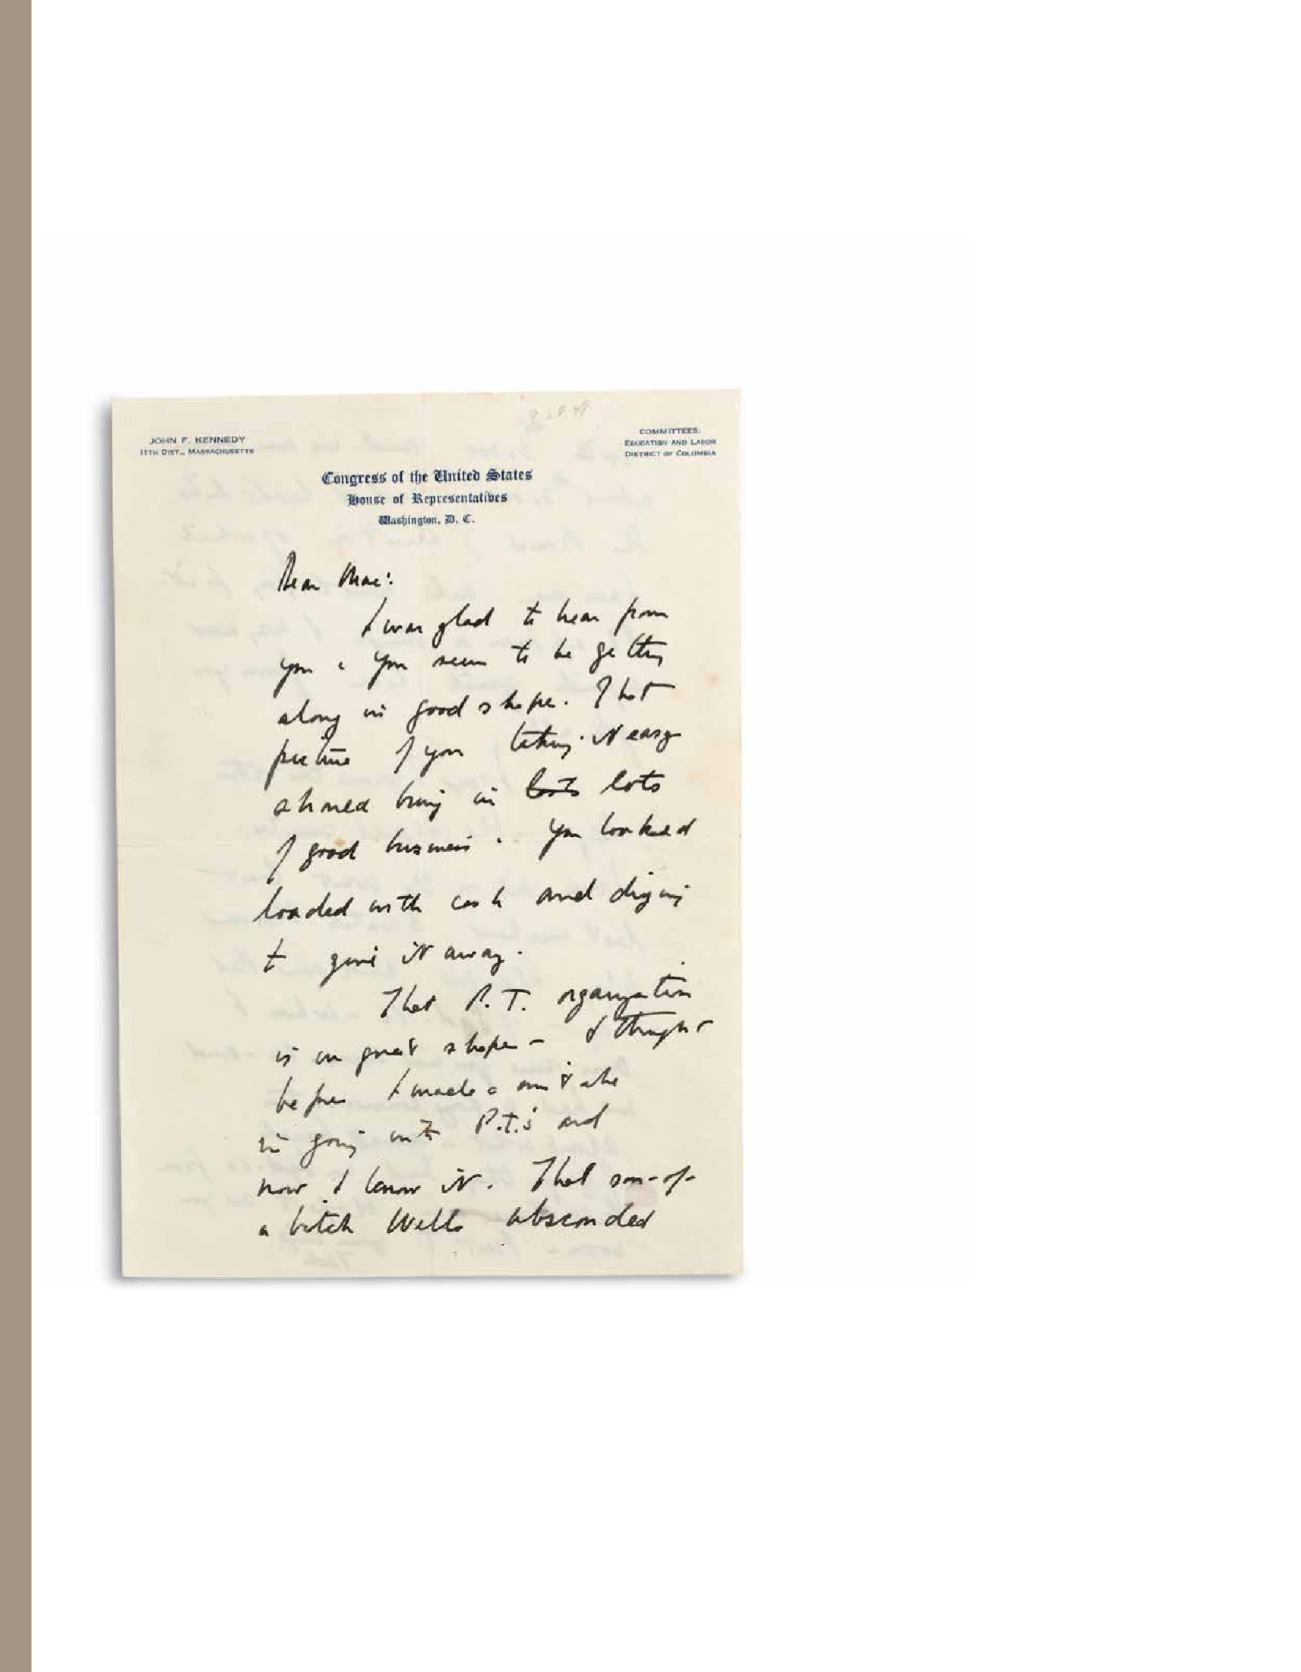 9.28.49
JOHN F. KENNEDY
11TH DIST., MASSACHUSETTS
COMMITTEES:
EDUCATION AND LABOR
DISTRICT OF COLUMBIA
Congress of the United States
House of Representatives
Washington, D. C.
Dear Mac:
I was glad to hear from
you & you seem to be getting
along in good shape. That
picture of you taking it easy
should bring in lots lots
of good business. You looked
loaded with cash and
to give it away.
That P.T. organization
is in great shape - I thought
before I made a mistake
in going into P.T.'s and
now I know it. That son-of-
a bitch Wells absconded